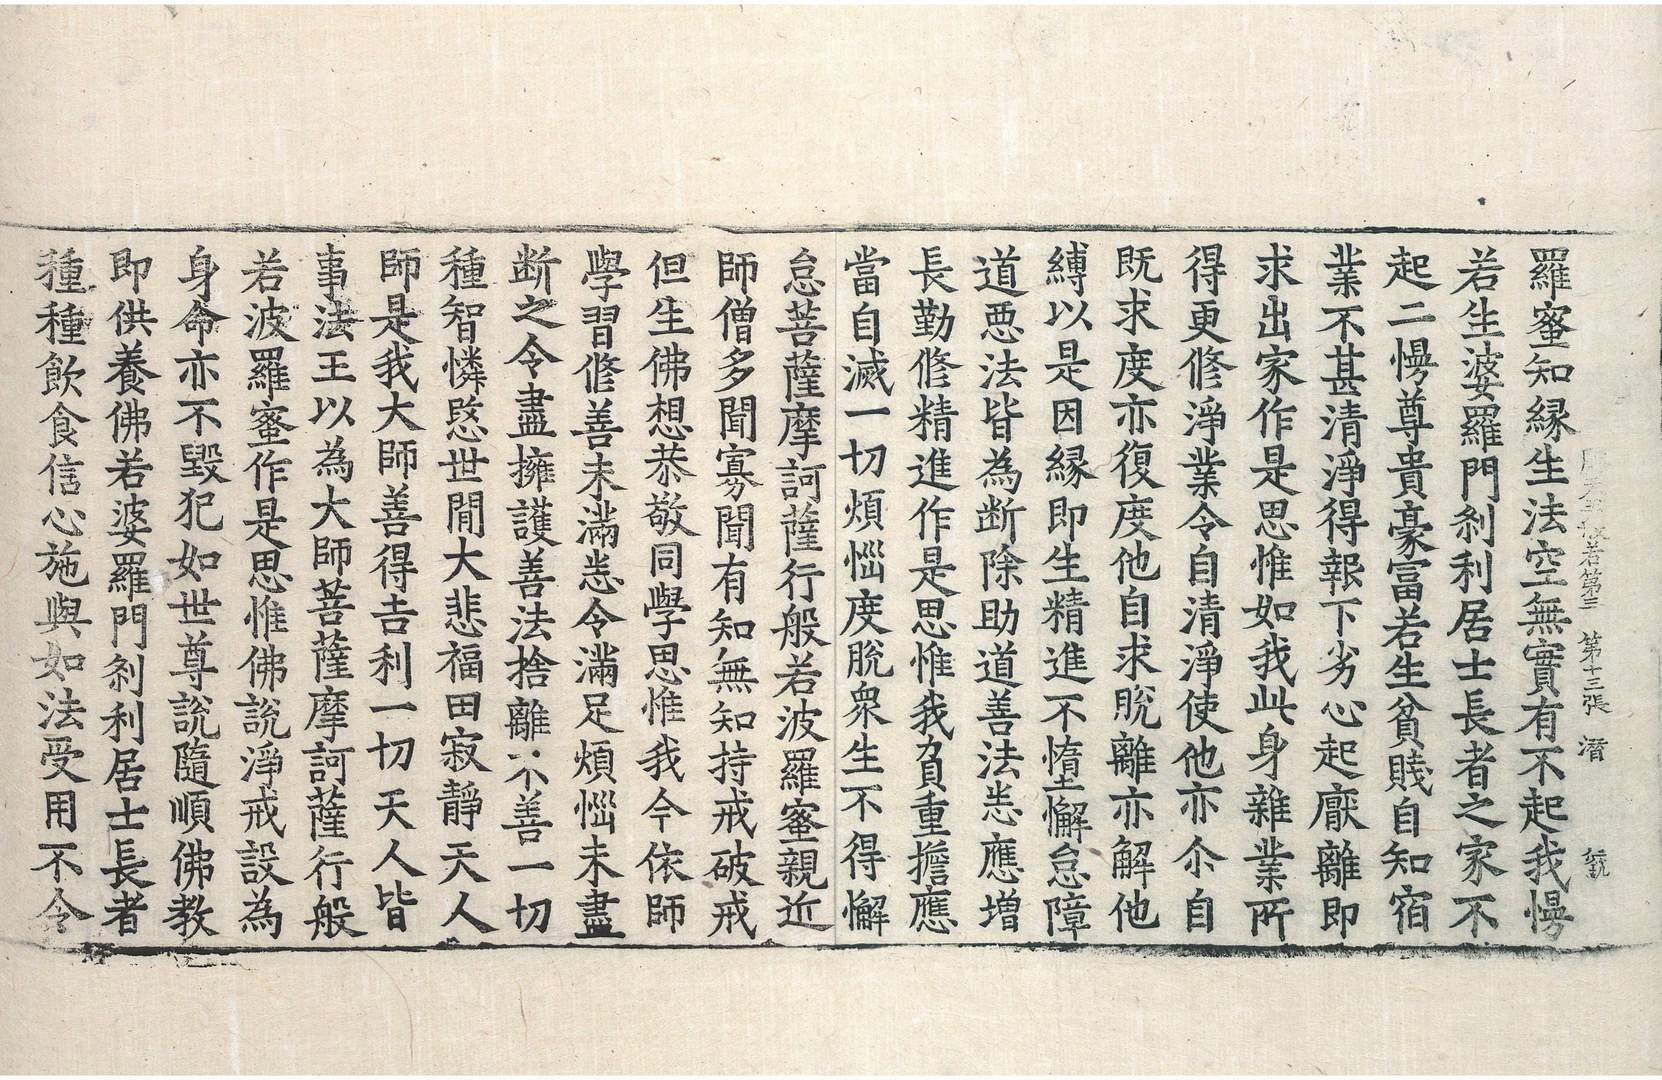 羅蜜知縁生法空無實有不起我㥬
若生婆羅門剎利居士長者之家不
起二㥬尊貴豪冨若生貧賤自知宿
業不甚清淨得報下劣心起猒離即
求出家作是思惟如我此身雜業所
得更修淨業令自清淨使他亦尒自
既求度亦復度他自求脫離亦解他
縛以是因縁即生精進不憜懈怠障
道惡法皆為断除助道善法悉應增
長勤修精進作是思惟我負重擔應
當自滅一切煩惱度脫衆生不得懈
怠菩薩摩訶薩行般若波羅蜜親近
師僧多聞寡聞有知無知持戒破戒
但生佛想恭敬同學思惟我今依師
學習修善未滿悉令滿足煩惱未盡
断之令盡擁護善法捨離不善一切
種智憐愍世間大悲福田寂靜天人
師是我大師善得吉利一切天人皆
事法王以為大師菩薩摩訶薩行般
若波羅蜜作是思惟佛說淨戒設為
身命亦不毀犯如世尊說隨順佛教
即供養佛若婆羅門剎利居士長者
種種飲食信心施與如法受用不令
般若第三 第十三張 潛